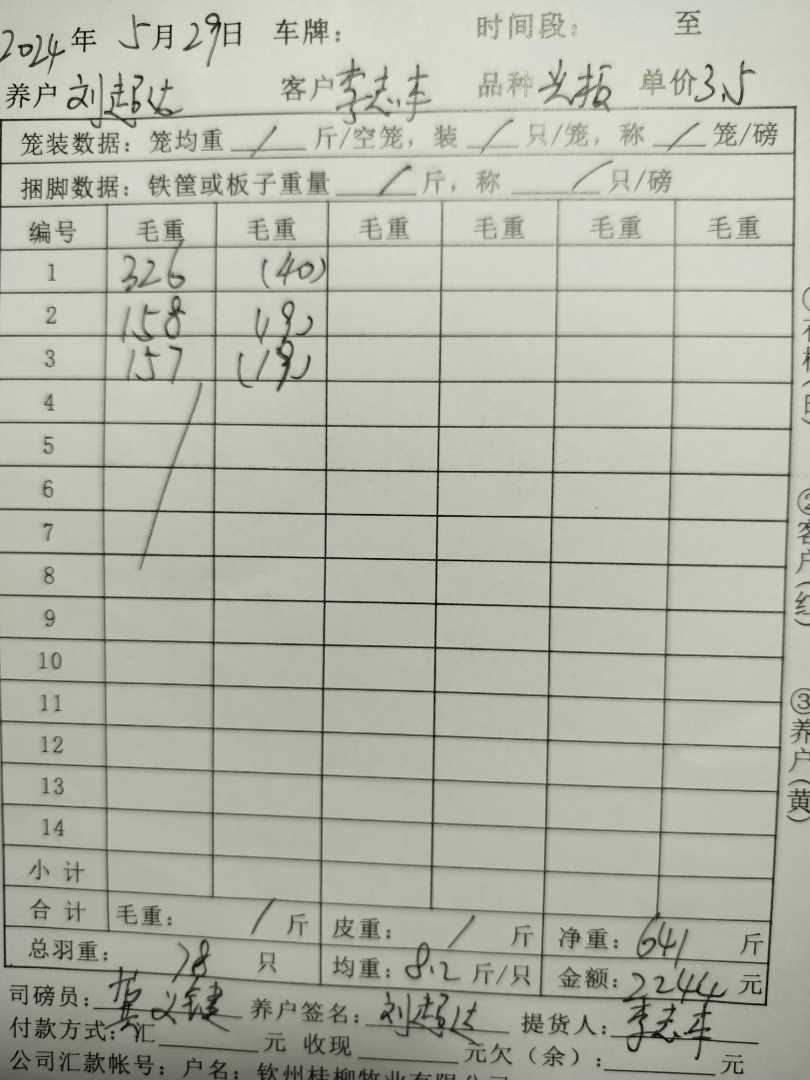 2024年 5月29日 车牌： 时间段： 至
养户 刘超达 客户 李志丰 品种 光板 单价3.5
笼装数据：笼均重 / 斤/空笼，装 / 只/笼，称 / 笼/磅
捆脚数据：铁筐或板子重量 / 斤，称 / 只/磅
编号 毛重 毛重 毛重 毛重 毛重 毛重
1 326 (40)
2 158 (19)
3 157 (19)
4
5
6
7
8
9
10
11
12
13
14
小计
合计 毛重： / 斤 皮重： / 斤 净重：641 斤
总羽重： 78 只 均重：8.2 斤/只 金额：2244 元
司磅员： 养户签名：刘超达 提货人：李志丰
付款方式：汇 元 收现 元欠（余）： 元
公司汇款帐号：户名：钦州桂柳牧业有限公司
②客户(红)
③养户(黄)